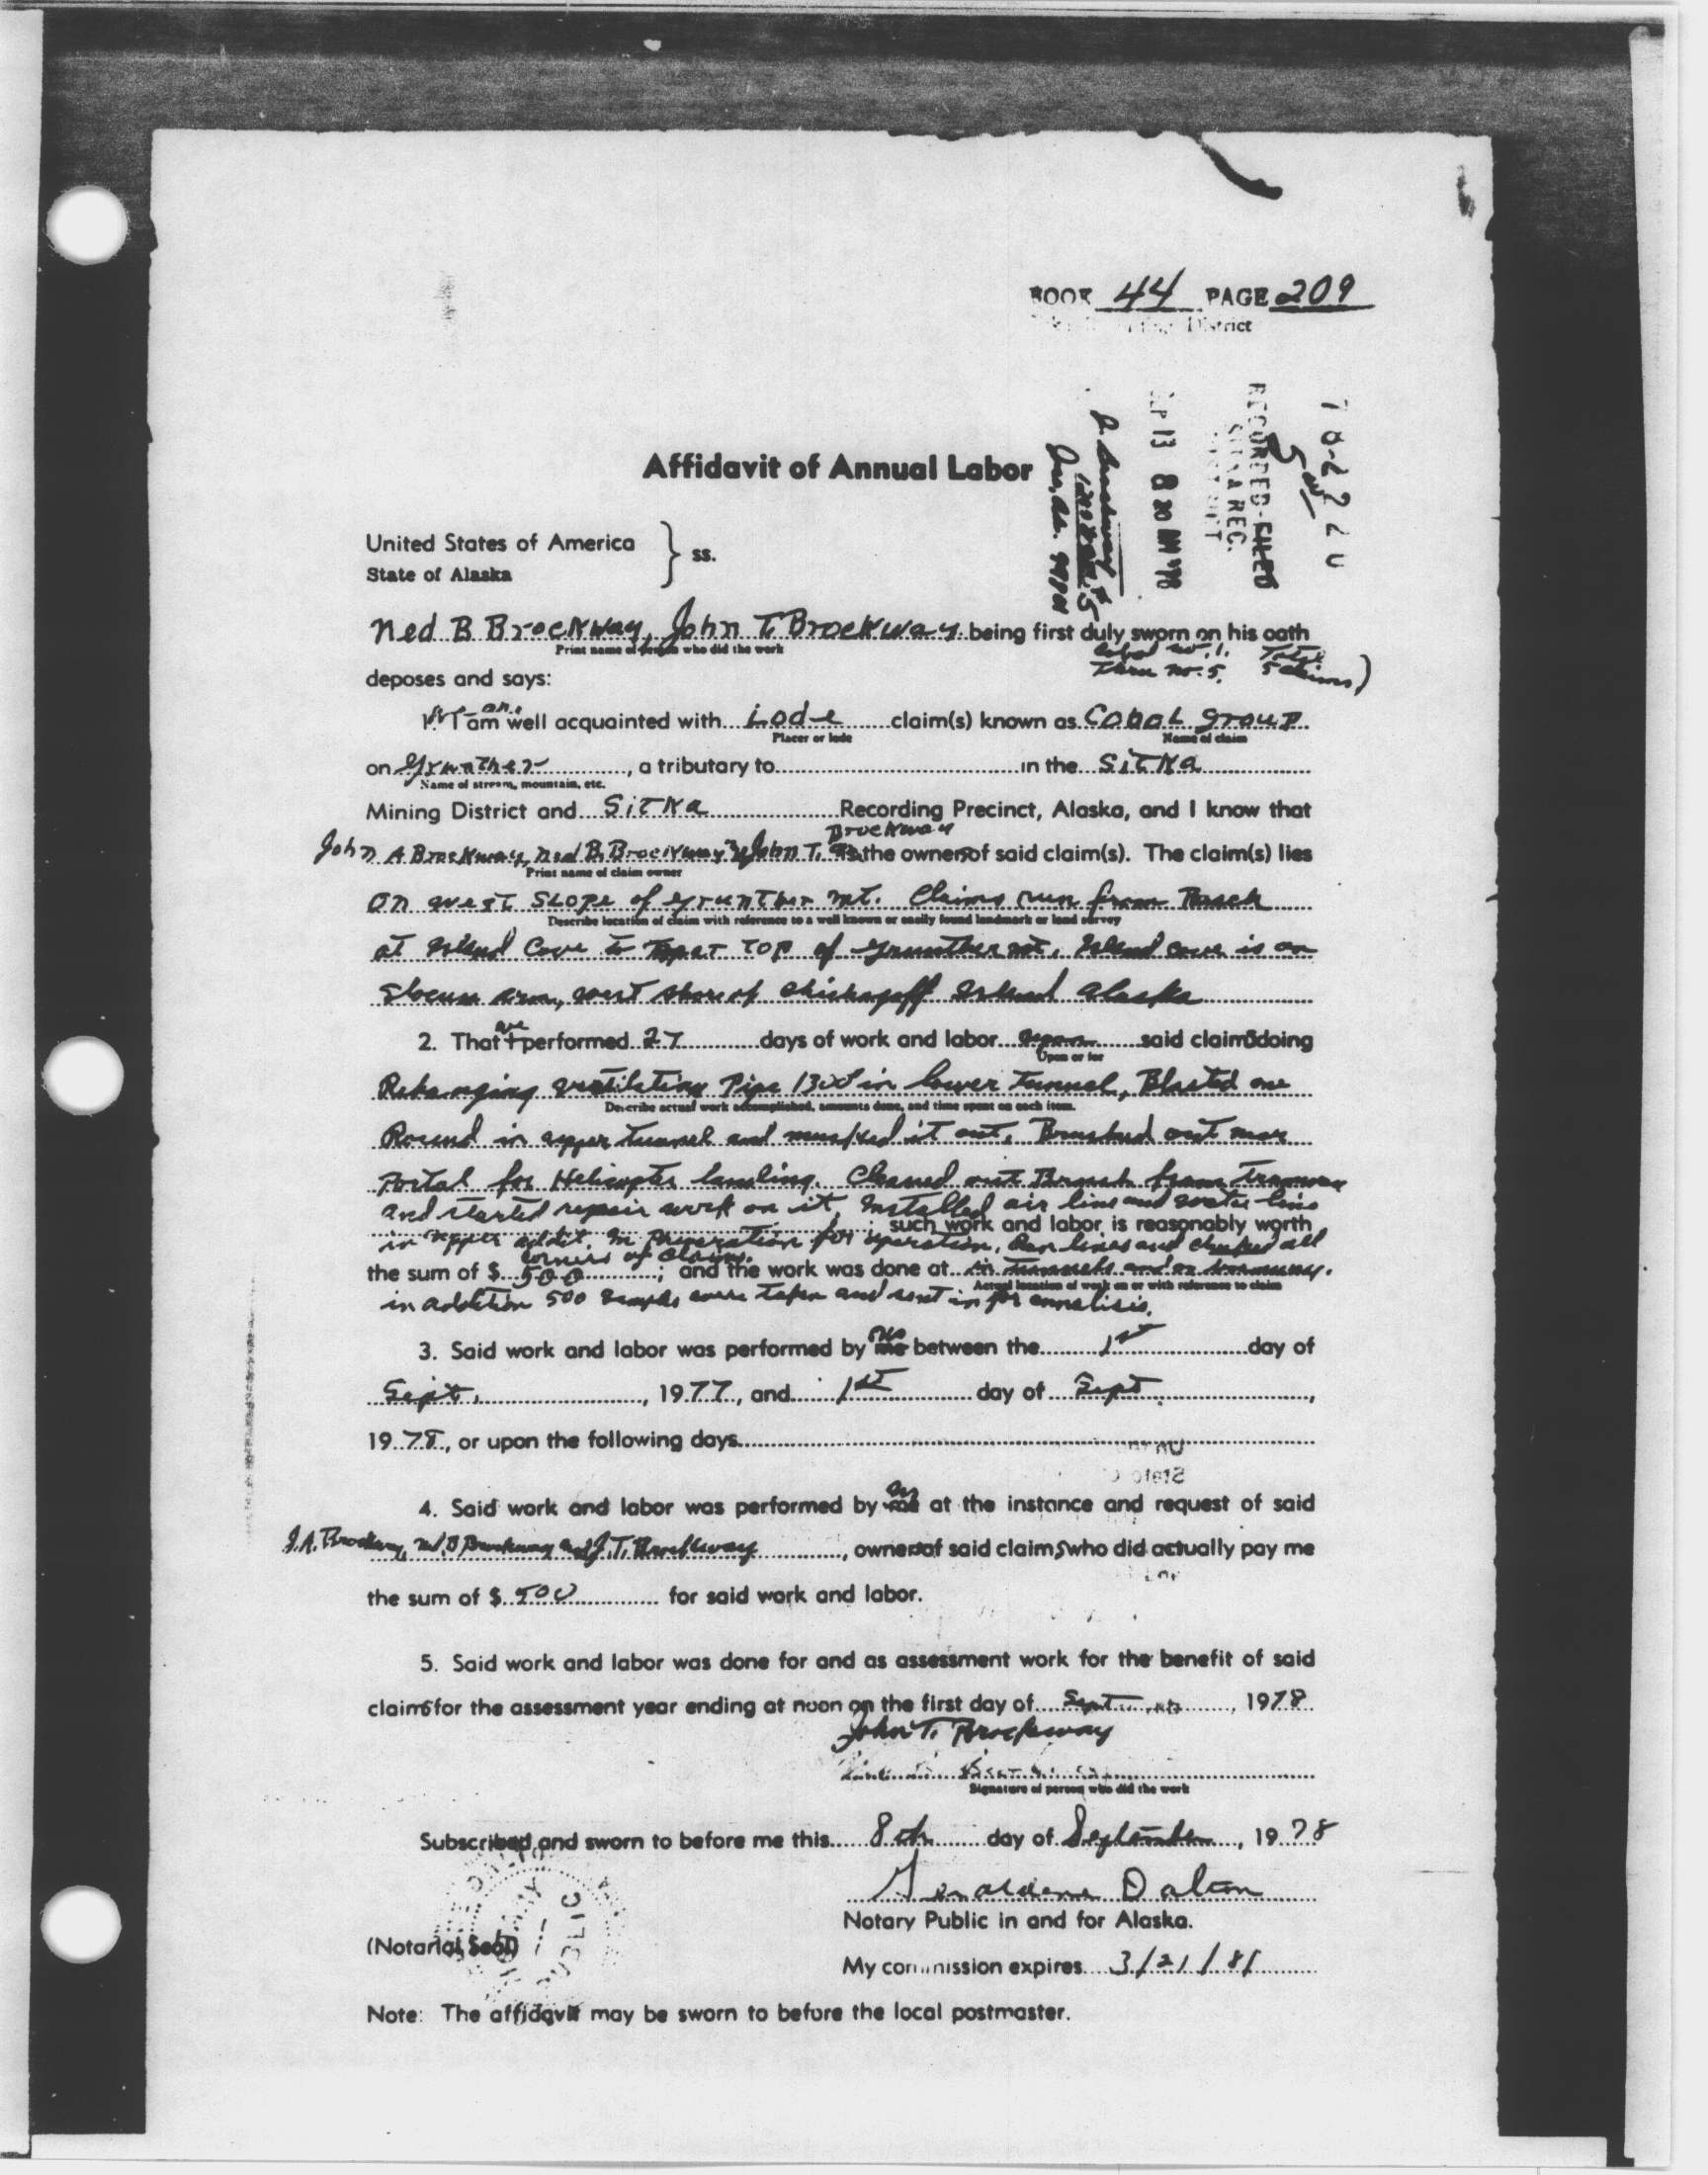 BOOK 44 PAGE 209
District
78-
RECORDED-FILED
SITKA REC.
SEP 13 8 20 AM '78
Affidavit of Annual Labor
United States of America
State of Alaska
} ss.
Ned B Brockway, John T. Brockway being first duly sworn on his oath
Print name of person who did the work
no. 1. Total
thru no. 5. 5 claims)
deposes and says:
1. We I am are well acquainted with Lode claim(s) known as Cobol Group
Placer or lode Name of claim
on , a tributary to in the Sitka
Name of stream, mountain, etc.
Mining District and Sitka Recording Precinct, Alaska, and I know that
Brockway
John A Brockway, Ned B. Brockway & John T. the owners of said claim(s). The claim(s) lies
Print name of claim owner
on west slope of mt. Claims run from Beach
Describe location of claim with reference to a well known or easily found landmark or land survey
at Island Cove to top of mt. Island cove is on
Slocum arm, west shore of Chichagoff Island Alaska
2. That we I performed 27 days of work and labor upon said claims doing
Upon or for
Rehanging ventilating Pipe 1300' in lower Tunnel, Blasted one
Describe actual work accomplished, amounts done, and time spent on each item.
Round in upper tunnel and mucked it out. Brushed out near
Portal for Helicopter landing. Cleaned out Brush from Tramway
and started repair work on it, Installed air line and water line
; such work and labor is reasonably worth
in upper addit. In Preperation for operation, Ran lines and checked all
corners of claims.
the sum of $ 500 ; and the work was done at in tunnels and on tramway.
Actual location of work on or with reference to claim
in addition 500 samples were taken and sent in for annalisis.
3. Said work and labor was performed by us me between the 1st day of
Sept. , 1977, and 1st day of Sept. ,
1978, or upon the following days
State
4. Said work and labor was performed by us me at the instance and request of said
J.A. Brockway, N.B Brockway and J.T. Brockway , owners of said claims who did actually pay me
the sum of $ 500 for said work and labor.
5. Said work and labor was done for and as assessment work for the benefit of said
claims for the assessment year ending at noon on the first day of Sept. , 1978
John T. Brockway
Signature of person who did the work
Subscribed and sworn to before me this 8th day of September , 1978
Dalton
Notary Public in and for Alaska.
(Notarial Seal)
PUBLIC
My commission expires 3/21/81
Note: The affidavit may be sworn to before the local postmaster.